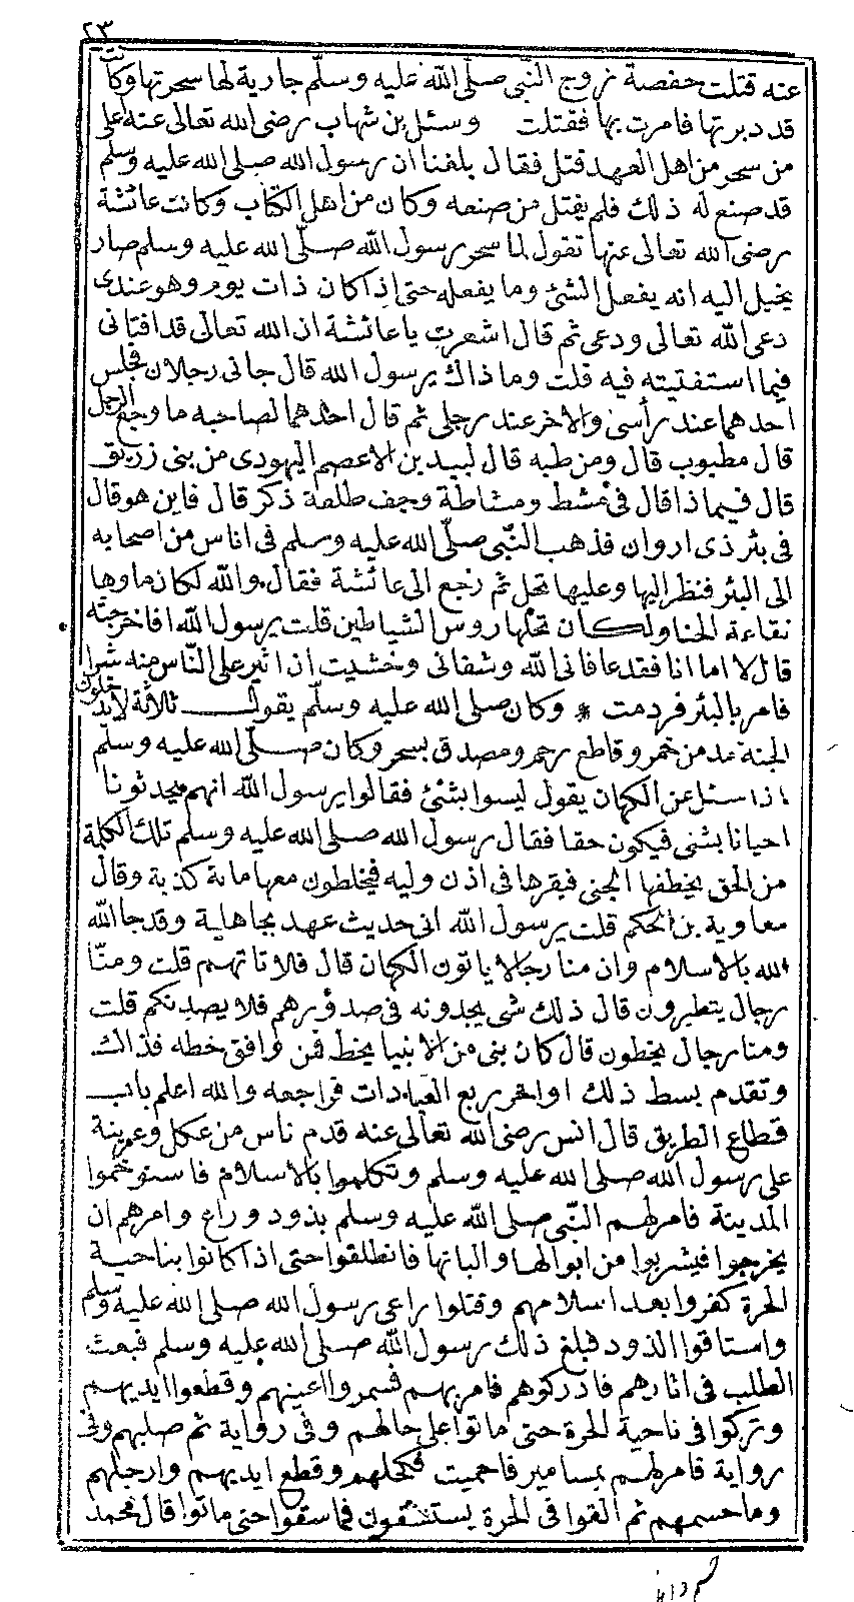 ٢٣
عنه قتلت حفصة زوج النبى صلى الله عليه وسلم جارية لها سحرتها وكانت
قد دبرتها فامرت بها فقتلت وسئل بن شهاب رضى الله تعالى عنه اعلى
من سحر من اهل العهد قتل فقال بلغنا ان رسول الله صلى الله عليه وسلم
قد صنع له ذلك فلم يقتل من صنعه وكان من اهل الكتاب وكانت عائشة
رضى الله تعالى عنها تقول لما سحر رسول الله صلى الله عليه وسلم صار
يخيل اليه انه يفعل الشئ وما يفعله حتى اذا كان ذات يوم وهو عندى
دعى الله تعالى ودعى ثم قال اشعرت يا عائشة ان الله تعالى قد افتانى
فيما استفتيته فيه قلت وما ذاك يرسول الله قال جانى رجلان فجلس
احدهما عند رأسى والاخر عند رجلى ثم قال احدهما لصاحبه ما وجع الرجل
قال مطبوب قال ومن طبه قال لبيد بن الاعصم اليهودى من بنى زريق
قال فيما ذا قال فى مشط ومشاطة وجف طلعة ذكر قال فاين هو قال
فى بئر ذى اروان فذهب النبى صلى الله عليه وسلم فى اناس من اصحابه
الى البئر فنظر اليها وعليها نخل ثم رجع الى عائشة فقال والله لكان ماوها
نقاعة الحنا ولكان نخلها روس الشياطين قلت يرسول الله افاخرجته
قال لا اما انا فقد عافانى الله وشفانى وخشيت ان اثير على الناس منه شرا
فامر بالبئر فردمت * وكان صلى الله عليه وسلم يقول ثلاثة لا يدخلون
الجنة مدمن خمر وقاطع رحم ومصدق بسحر وكان صلى الله عليه وسلم
اذا سئل عن الكهان يقول ليسوا بشئ فقالوا يرسول الله انهم يحدثونا
احيانا بشى فيكون حقا فقال رسول الله صلى الله عليه وسلم تلك الكلمة
من الحق يخطفها الجنى فيقرها فى اذن وليه فيخلطون معها ماية كذبة وقال
معاوية بن الحكم قلت يرسول الله انى حديث عهد بجاهلية وقد جا الله
الله بالاسلام وان منا رجالا ياتون الكهان قال فلا تاتهم قلت ومنا
رجال يتطيرون قال ذلك شى يجدونه فى صدورهم فلا يصدنكم قلت
ومنا رجال يخطون قال كان نبى من الانبيا يخط فمن وافق خطه فذاك
وتقدم بسط ذلك اواخر ربع العبادات فراجعه والله اعلم باب
قطاع الطريق قال انس رضى الله تعالى عنه قدم ناس من عكل وعرينة
على رسول الله صلى الله عليه وسلم وتكلموا بالاسلام فاستوخموا
المدينة فامر لهم النبى صلى الله عليه وسلم بذود وراع وامرهم ان
يخرجوا فيشربوا من ابوالها والبانها فانطلقوا حتى اذا كانوا بناحية
الحرة كفروا بعد اسلامهم وقتلوا راعى رسول الله صلى الله عليه وسلم
واستاقوا الذود فبلغ ذلك رسول الله صلى الله عليه وسلم فبعث
الطلب فى اثارهم فادركوهم فامر بهم فسمروا اعينهم وقطعوا ايديهم
وتركوا فى ناحية الحرة حتى ماتوا على حالهم وفى رواية ثم صلبهم وفى
رواية فامر لهم بمسامير فاحميت فكحلهم وقطع ايديهم وارجلهم
وما حسمهم ثم القوا فى الحرة يستسقون فما سقوا حتى ماتوا قال محمد